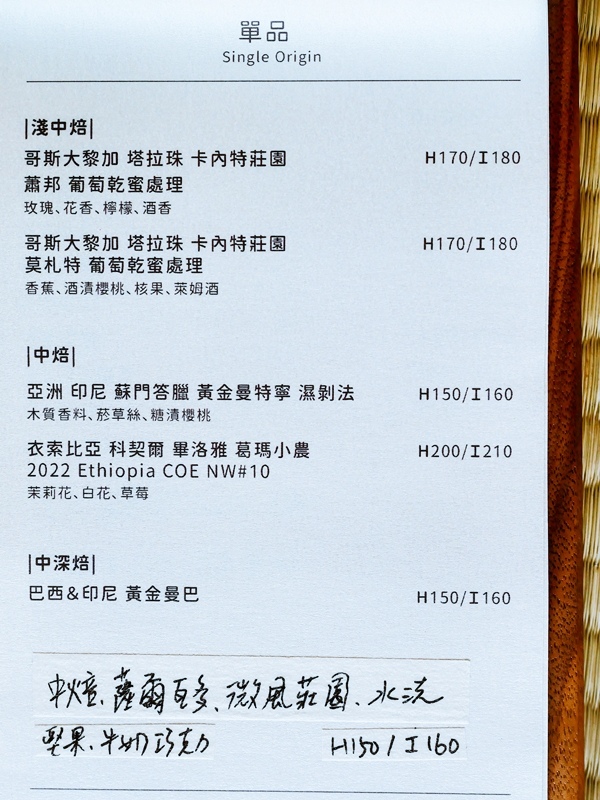 單品
Single Origin
|淺中焙|
哥斯大黎加 塔拉珠 卡內特莊園 H170/I180
蕭邦 葡萄乾蜜處理
玫瑰、花香、檸檬、酒香
哥斯大黎加 塔拉珠 卡內特莊園 H170/I180
莫札特 葡萄乾蜜處理
香蕉、酒漬櫻桃、核果、萊姆酒
|中焙|
亞洲 印尼 蘇門答臘 黃金曼特寧 濕剝法 H150/I160
木質香料、菸草絲、糖漬櫻桃
衣索比亞 科契爾 畢洛雅 葛瑪小農 H200/I210
2022 Ethiopia COE NW#10
茉莉花、白花、草莓
|中深焙|
巴西&印尼 黃金曼巴 H150/I160
中焙、薩爾瓦多、微風莊園、水洗
堅果、牛奶巧克力 H150/I160